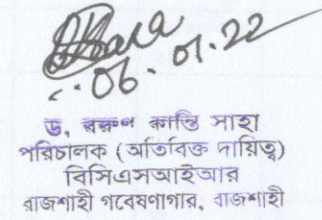 06.01.22
ড, বরুণ কান্তি সাহা
পরিচালক (অতিরিক্ত দায়িত্ব)
বিসিএসআইআর
রাজশাহী গবেষণাগার, রাজশাহী